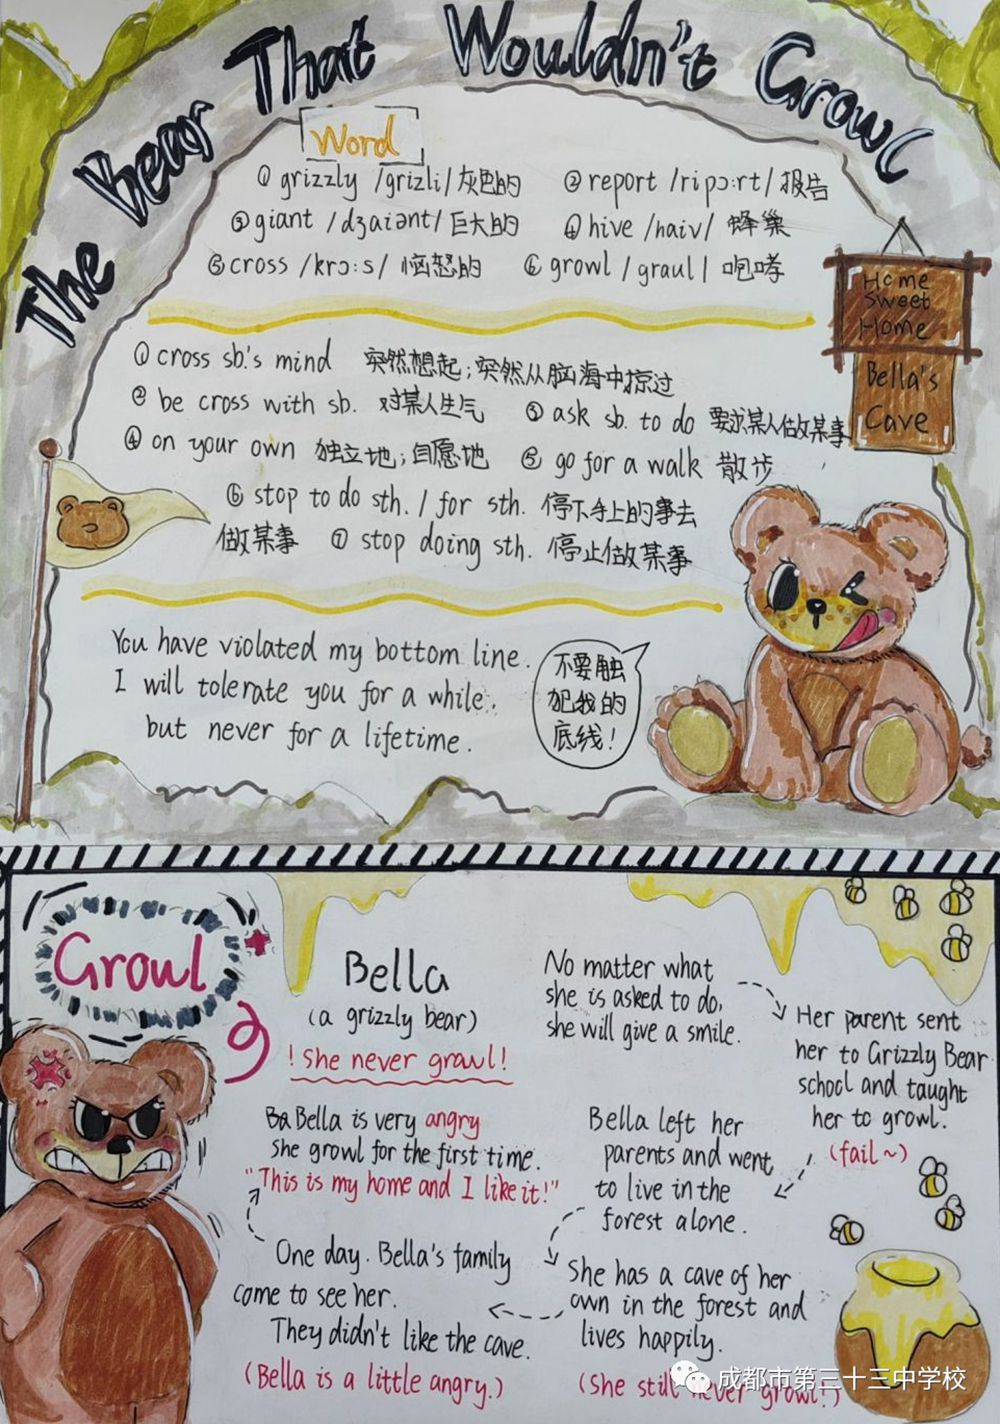 The Bear That Wouldn't Growl
Word
① grizzly /grizli/ 灰色的 ② report /ripɔ:rt/ 报告
③ giant /dʒaiənt/ 巨大的 ④ hive /haiv/ 蜂巢
⑤ cross /krɔ:s/ 恼怒的 ⑥ growl /graul/ 咆哮
Home
Sweet
Home
Bella's
Cave
① cross sb.'s mind 突然想起;突然从脑海中掠过
② be cross with sb. 对某人生气 ③ ask sb. to do 要求某人做某事
④ on your own 独立地;自愿地 ⑤ go for a walk 散步
⑥ stop to do sth. / for sth. 停下手上的事去
做某事 ⑦ stop doing sth. 停止做某事
You have violated my bottom line.
I will tolerate you for a while.
but never for a lifetime.
不要触
犯我的
底线!
Growl
Bella
(a grizzly bear)
! She never grawl!
No matter what
she is asked to do,
she will give a smile.
Her parent sent
her to Grizzly Bear
school and taught
her to growl.
(fail~)
Bella left her
parents and went
to live in the
forest alone.
She has a cave of her
own in the forest and
lives happily.
(She still never growl!)
One day. Bella's family
come to see her.
They didn't like the cave.
(Bella is a little angry.)
Ba Bella is very angry
she growl for the first time.
"This is my home and I like it!"
成都市第三十三中学校